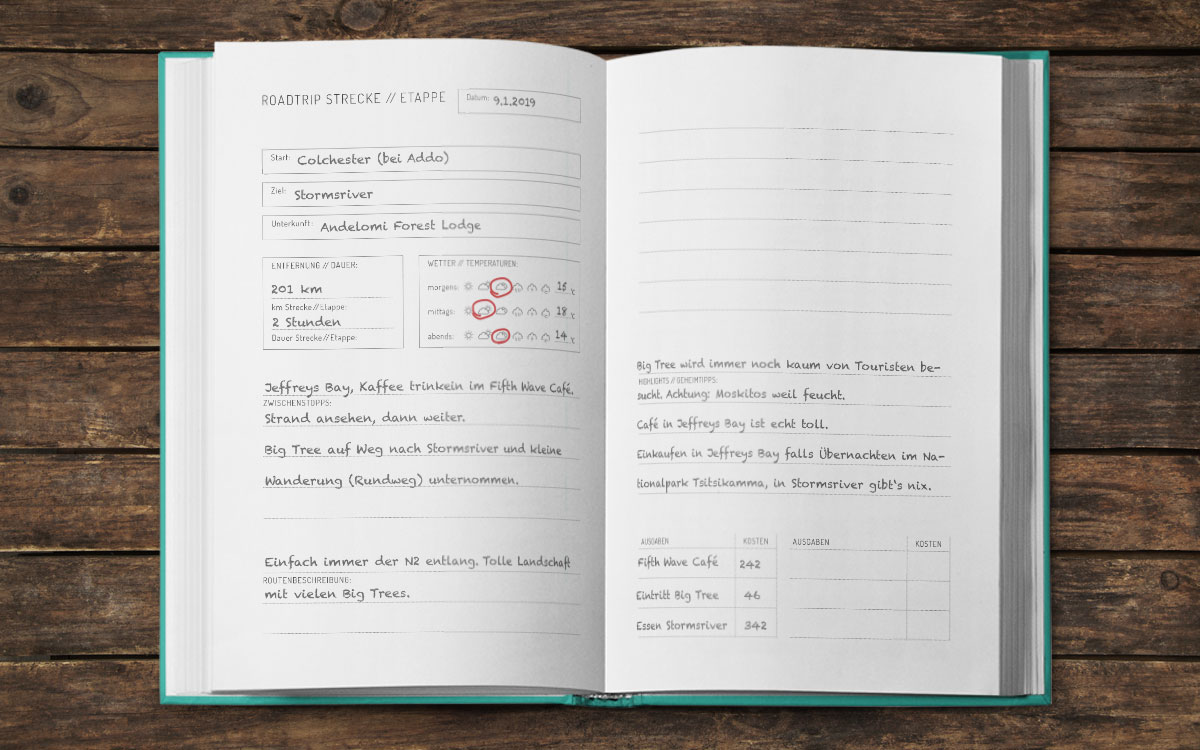 ROADTRIP STRECKE // ETAPPE
Datum: 9.1.2019
Start: Colchester (bei Addo)
Ziel: Stormsriver
Unterkunft: Andelomi Forest Lodge
ENTFERNUNG // DAUER:
201 km
km Strecke//Etappe:
2 Stunden
Dauer Strecke//Etappe:
WETTER // TEMPERATUREN:
morgens: 15 °C
mittags: 18 °C
abends: 14 °C
Jeffreys Bay, Kaffee trinkein im Fifth Wave Café.
ZWISCHENSTOPPS:
Strand ansehen, dann weiter.
Big Tree auf Weg nach Stormsriver und kleine
Wanderung (Rundweg) unternommen.
Einfach immer der N2 entlang. Tolle Landschaft
ROUTENBESCHREIBUNG:
mit vielen Big Trees.
Big Tree wird immer noch kaum von Touristen be-
HIGHLIGHTS // GEHEIMTIPPS:
sucht. Achtung: Moskitos weil feucht.
Café in Jeffreys Bay ist echt toll.
Einkaufen in Jeffreys Bay falls Übernachten im Na-
tionalpark Tsitsikamma, in Stormsriver gibt's nix.
AUSGABEN KOSTEN
Fifth Wave Café 242
Eintritt Big Tree 46
Essen Stormsriver 342
AUSGABEN KOSTEN